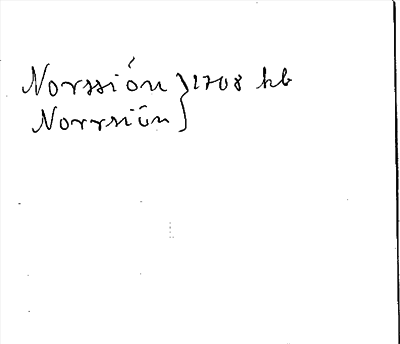 Norssión } 1708 hb
Norrsiôn